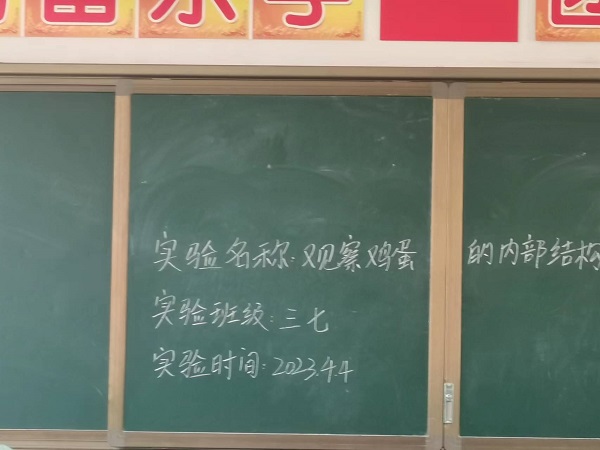 实验名称:观察鸡蛋的内部结构
实验班级:三七
实验时间:2023.4.4